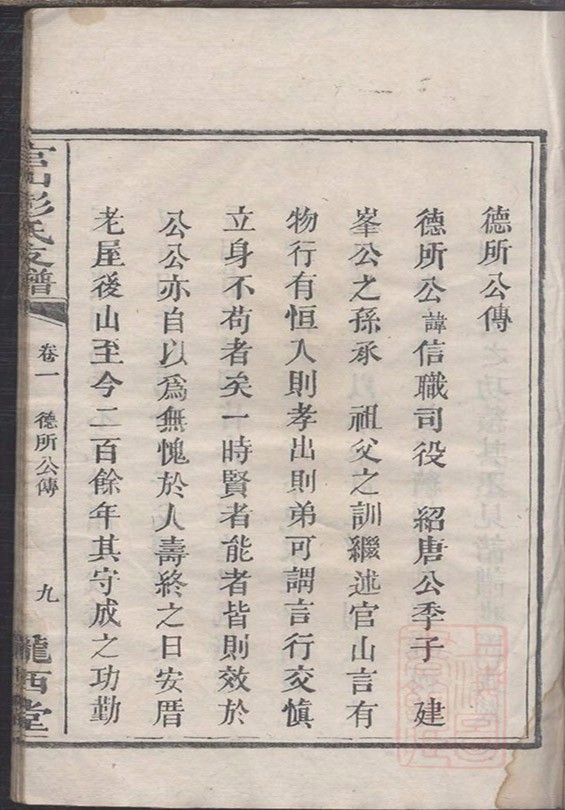 德所公傳
德所公諱信職司役　紹唐公季子　建
峯公之孫承　祖父之訓繼述官山言有
物行有恒入則孝出則弟可謂言行交慎
立身不苟者矣一時賢者能者皆則效於
公公亦自以爲無愧於人壽終之日安厝
老屋後山至今二百餘年其守成之功勤
官山彭氏支譜
卷一　德所公傳
九
隴西堂